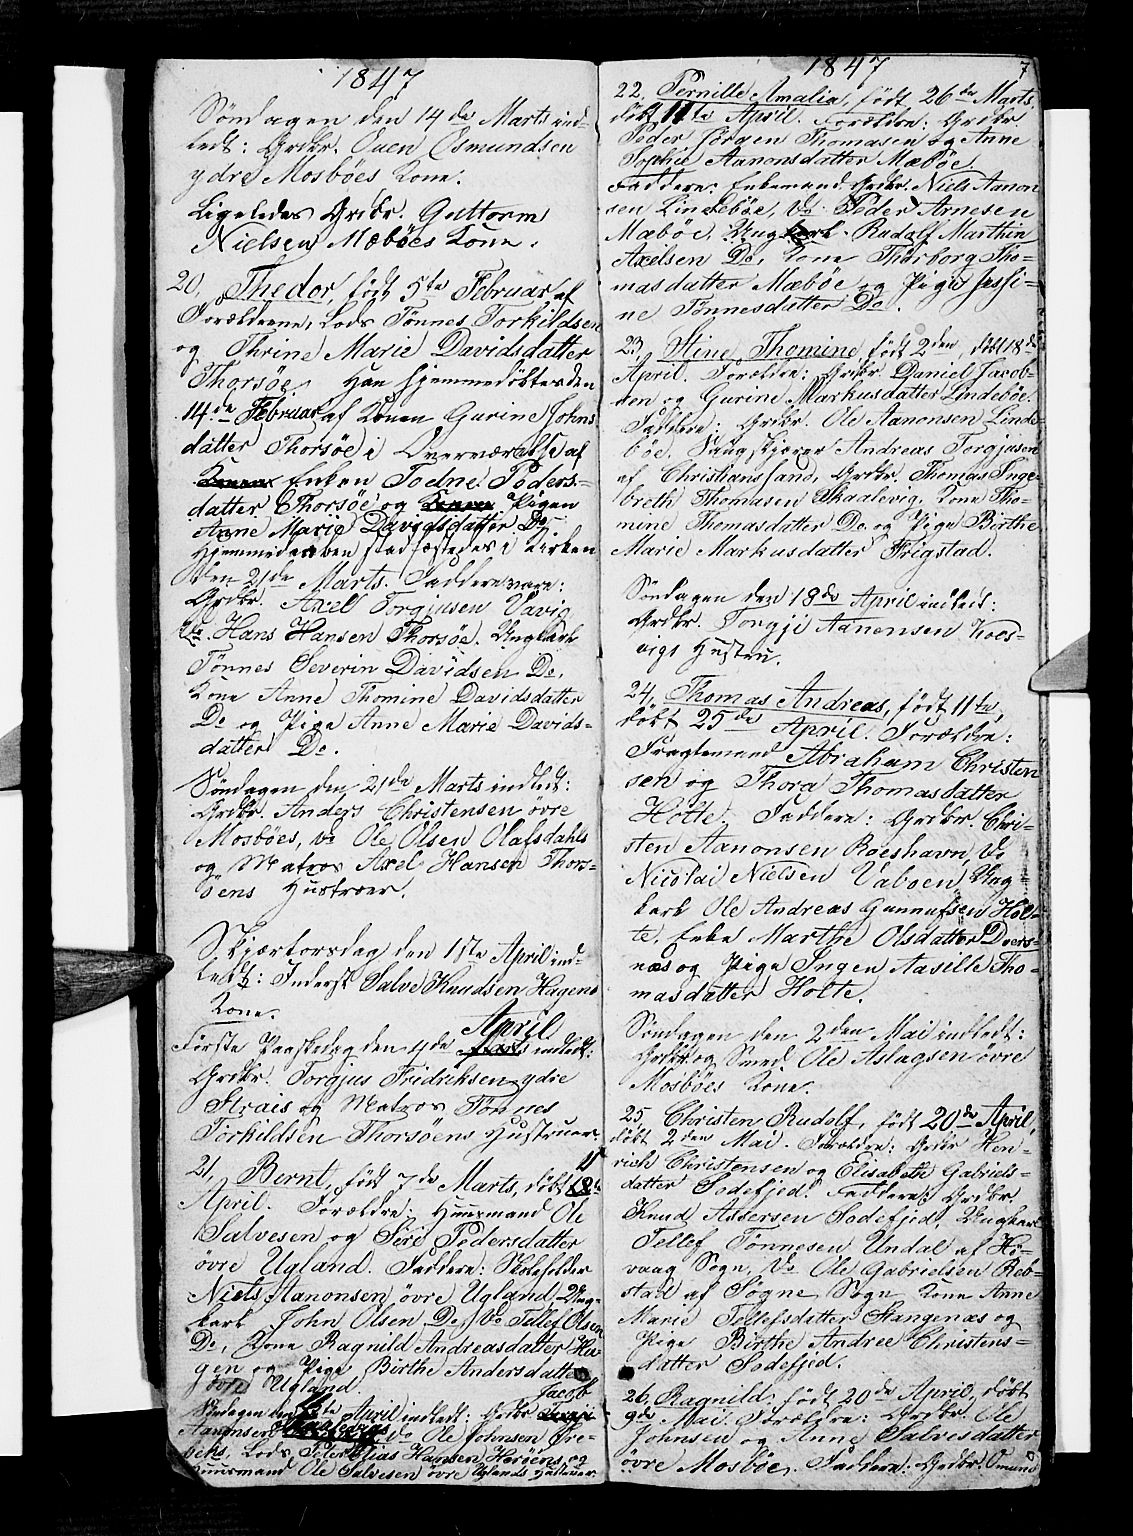 1847
Söndagen den 14de Marts ind-
ledt: Grdbr. Ouen Osmundsen
ydre Mosböes Kone.
Ligeledes Grdbr. Guttorm
Nielsen Mæböes Kone.
20, Thedor, født 5te Februar af
Forældrene, Lods Tönnes Torkildsen
og Thrine Marie Davidsdatter
Thorsöe. Han hjemmedöbtes den
14de Februar af Konen Gurine Johns
datter Thorsöe i Overværelse af
Enken Todne Peders-
datter Thorsöe og Pigen
Anne Marie Davidsdatter Do
Hjemmedaaben stadfæstedes i Kirken
den 21de Marts. Faddere vare:
Grdbr. Axel Torgjusen Vavig
Do Hans Hansen Thorsöe. Ungkarl
Tönnes Severin Davidsen Do,
Kone Anne Thomine Davidsdatter
Do og Pige Anne Marie Davids-
datter Do.
Söndagen den 21de Marts indledt:
Grdbr. Anders Christensen övre
Mosböes, Do Ole Olsen Olafsdahls
og Matros Axel Hansen Thors-
öens Hustruer.
Skjærtorsdag den 1ste April ind-
ledt: Inderst Salve Knudsen Hagens
Kone.
April
Förste Paaskedag den 4de Marts indledt:
Grdbr. Torgjus Fridriksen ydre
Strais og Matros Tönnes
Torkildsen Thorsöens Hustruer.
21, Bernt, født 7de Marts, döbt 11
April. Forældre: Huusmand Ole
Salvesen og Siri Pedersdatter
övre Ugland. Faddere: Skoleholder
Niels Aanonsen övre Ugland, Ung-
karl John Olsen Do, Do Tellef Olsen
Do, Kone Ragnild Andreasdatter Ha-
gen og Pige Birthe Andersdatter
övre Ugland.
Jacob
Söndagen den 11te April indledt: Grdbr.
Aanonsen Do Ole Johnsen Øre-
Lods Peter Elias Hansen og
Huusmand Ole Salvesen övre Uglands Hustruer.
1847 7
22, Pernille Amalia, født 26de Marts,
döbt 11te April. Forældre: Grdbr
Peder Jörgen Thomasen og Anne
Sophie Aanonsdatter Mæböe
Faddere: Enkemand Grdbr. Niels Aanon
sen Lindeböe, Do Peder Arnesen
Mæböe, Ungkarl Rudolf Marthin
Axelsen Do, Kone Thorborg Tho-
masdatter Mæböe og Pige Jessi-
ne Tönnesdatter Do.
23, Stine Thomine, født 2den, döbt 18de
April. Forældre: Grdbr. Daniel Jacob-
sen og Gurine Markusdatter Lindeböe.
Faddere: Grdbr. Ole Aanonsen Linde-
böe, Andreas Torgjusen
af Christianssand, Grdbr. Thomas Inge-
breth Thomasen Skaalevig, Kone Tho-
mine Thomasdatter Do og Pige Birthe
Marie Markusdatter Frigstad.
Söndagen den 18de April indledt:
Grdbr. Torgji Aanonsen Koes-
vigs Hustru.
24, Thomas Andreas, født 11te,
döbt 25de April. Forældre:
Fragtemand Abraham Christen
sen og Thora Thomasdatter
Holte. Faddere: Grdbr. Chri-
sten Aanonsen Roeshavn, Do
Nicolai Nielsen Vaboen, Ung-
karl Ole Andreas Gunnufsen Hol-
te, Enke Marthe Olsdatter Dvers-
næs og Pige Ingen Aasille Tho-
masdatter Holte.
Söndagen den 2den Mai indledt:
Grdbr. og Smed Ole Aslagsen övre
Mosböes Kone.
25, Christen Rudolf, født 20de April,
döbt 2den Mai. Forældre: Grdbr Hen-
rich Christensen og Elisabeth Gabriels-
datter Sodefjed. Faddere: Grdbr.
Knud Assersen Sodefjed, Ungkarl
Tellef Tönnesen Undal af Hö-
vaag Sogn, Do Ole Gabrielsen Reb-
stad af Søgne Sogn, Kone Anne
Marie Tellefsdatter Stangenæs og
Pige Birthe Andree Christens-
datter Sodefjed.
26, Ragnild, født 20de April, döbt
9de Mai. Forældre: Grdbr. Ole
Johnsen og Anne Salvesdatter
övre Mosböe. Faddere: Grdbr. Omund